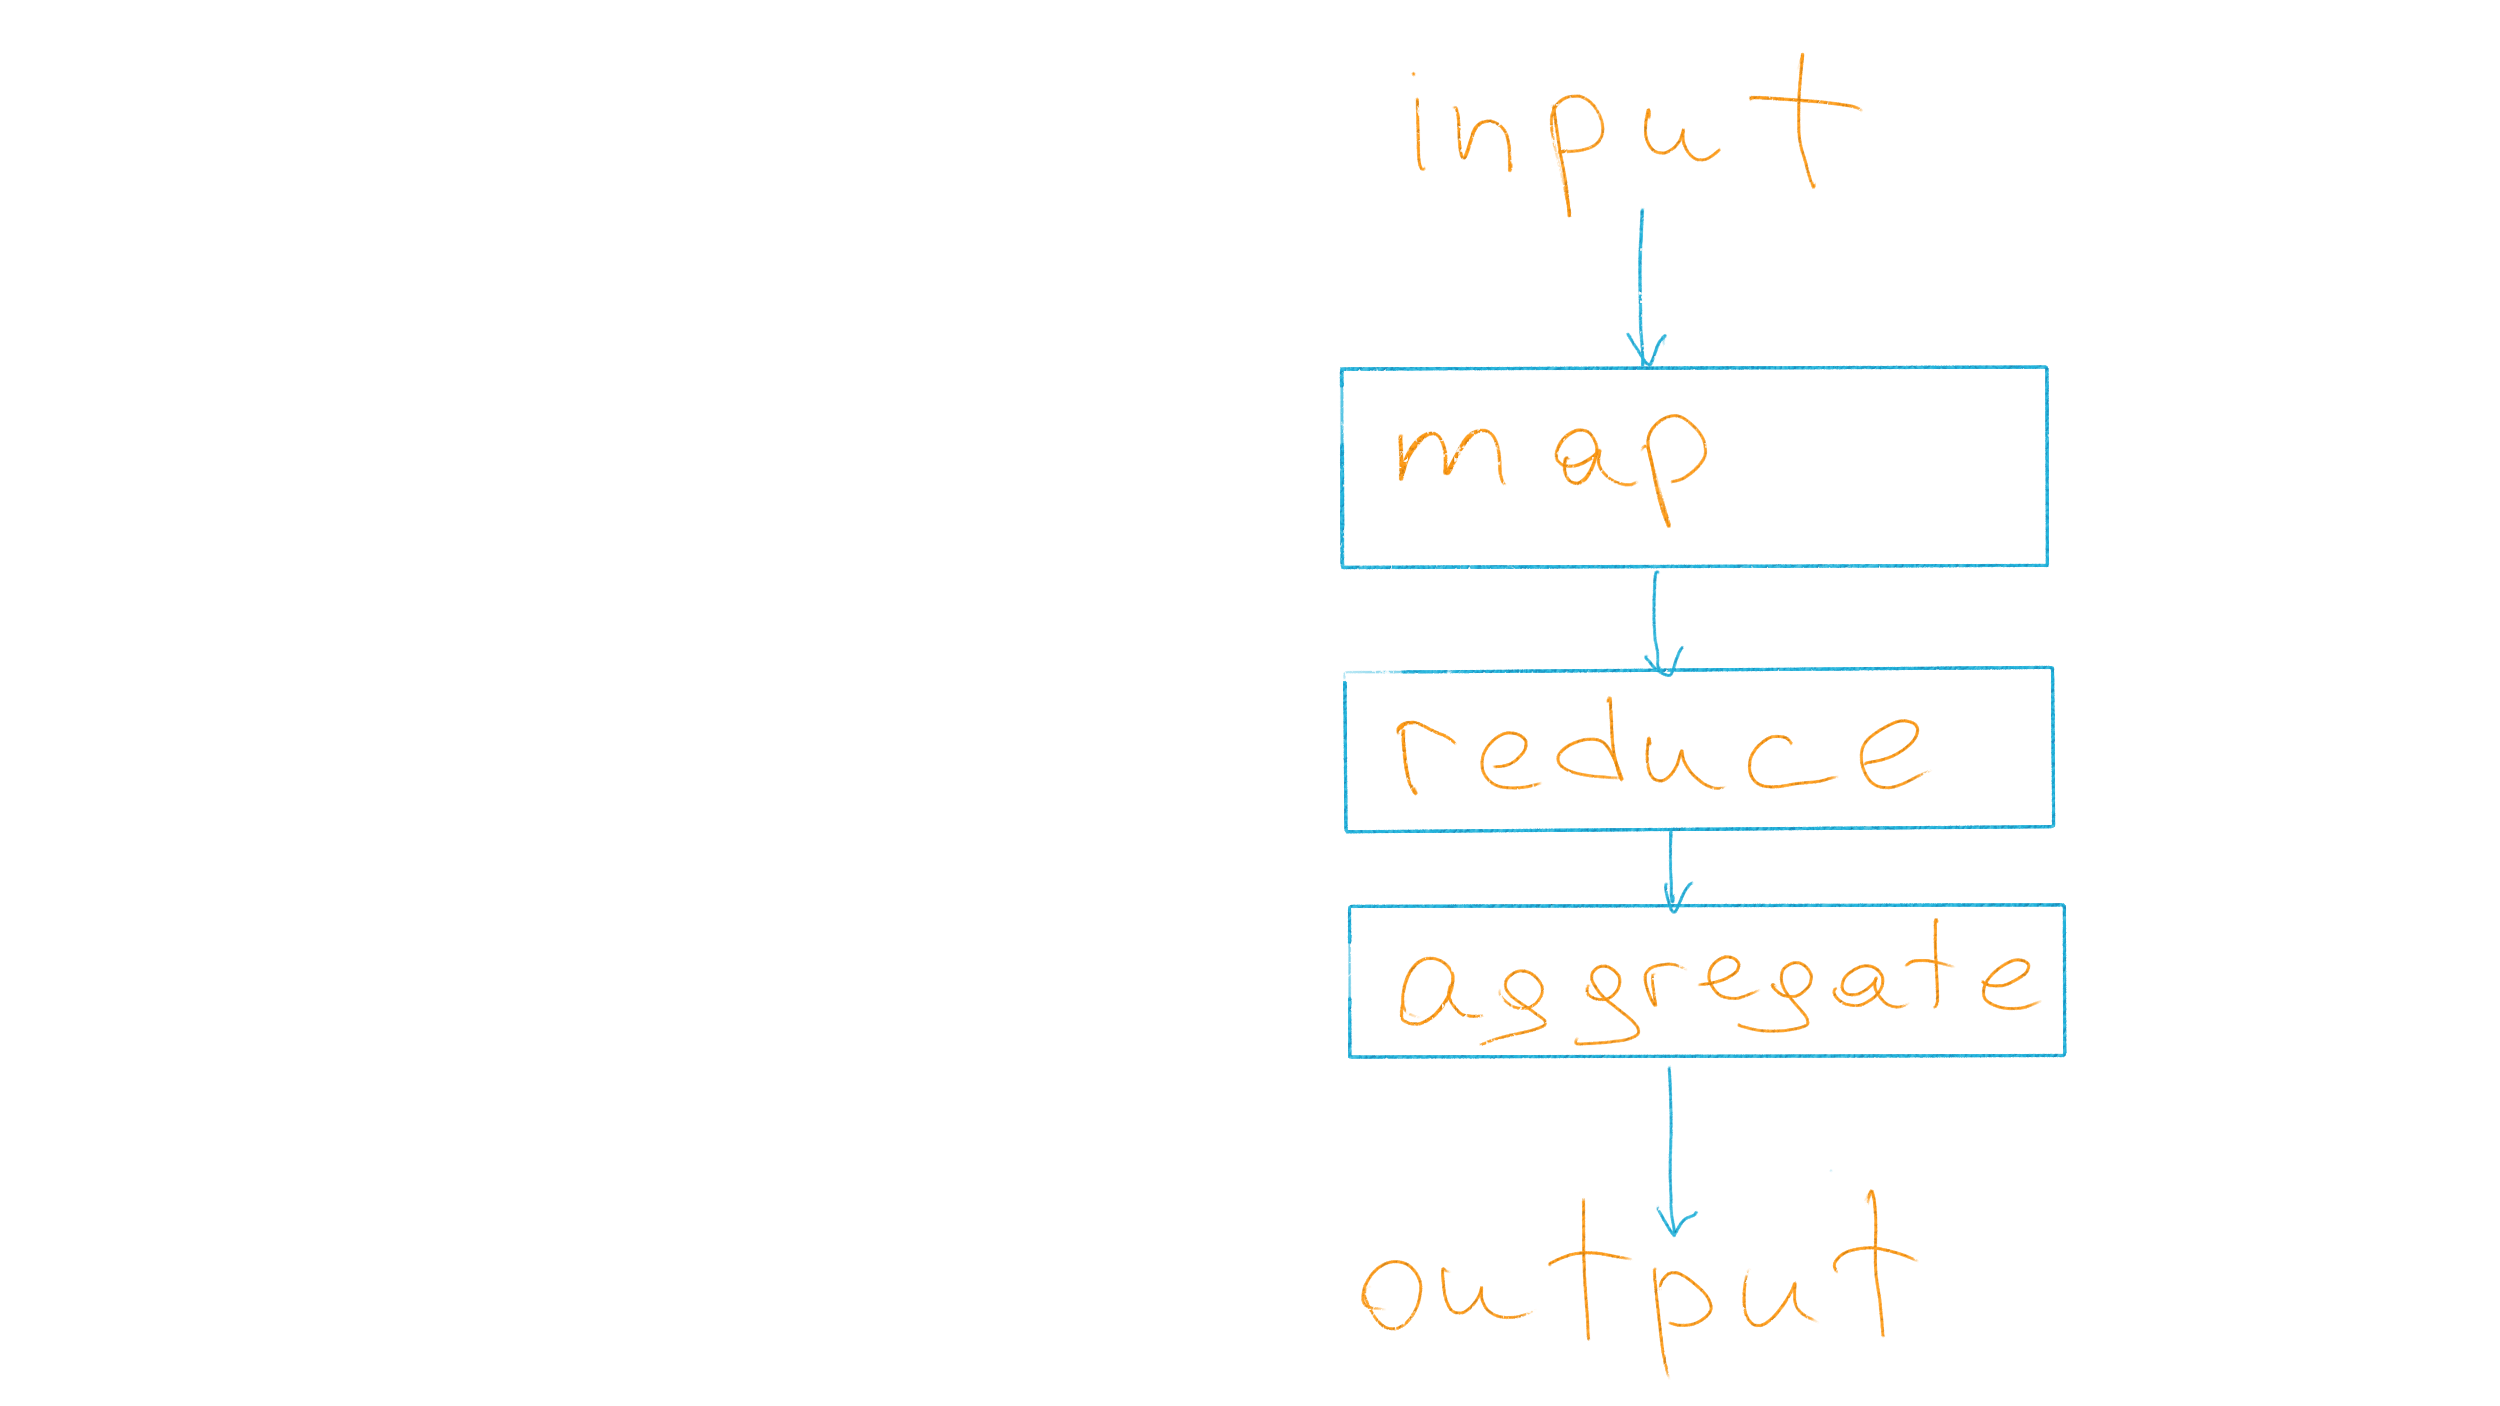 input
map
reduce
aggregate
output